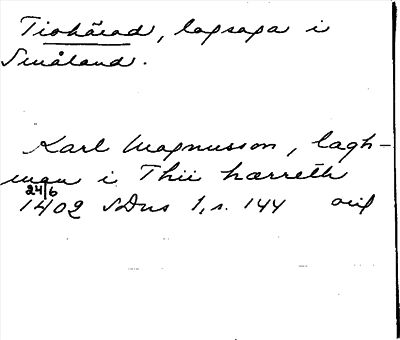 Tiohärad, lagsaga i
Småland.
Karl Magnusson, lagh-
man i Thii hærreth
24/6
1402 SDns 1, s. 144 orig